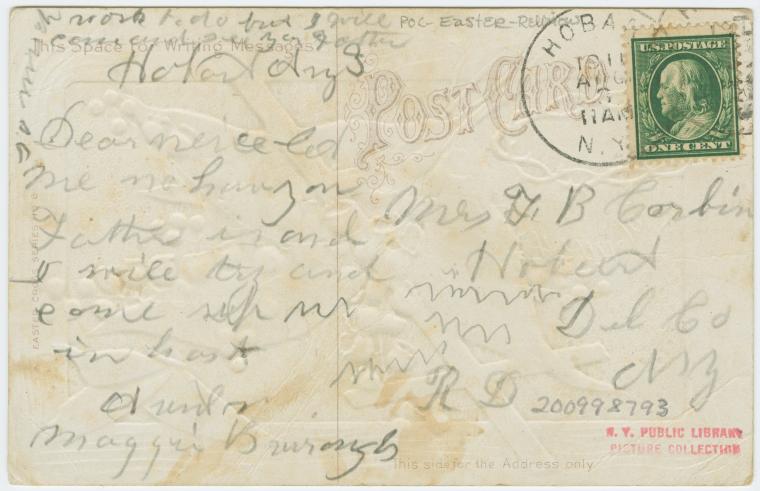 work to do but I will
come and see yo Father
This Space for Writing Messages
Hobart Aug 3
Dear neice let
me no how yon
Father is and
I will try and
come up
in hast
Maggie Burrough
POC-EASTER-Religious
POST CARD
HOBA
AUG
11AM
N.Y.
U.S. POSTAGE
ONE CENT
Mrs F B Corbin
Hobart
Del Co
R D
NY
200998793
N. Y. PUBLIC LIBRARY
PICTURE COLLECTION
This side for the Address only
EASTER CROSS SERIES NO